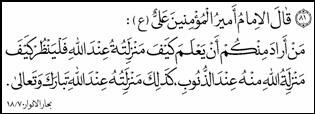 ٨١ قَالَ الإِمَامُ أَمِيرُ الْمُؤْمِنِينَ عَلِيٌّ (ع) :
مَنْ أَرَادَ مِنْكُمْ أَنْ يَعْلَمَ كَيْفَ مَنْزِلَتُهُ عِنْدَ اللهِ فَلْيَنْظُرْ كَيْفَ
مَنْزِلَةُ اللهِ مِنْهُ عِنْدَ الذُّنُوبِ، كَذَلِكَ مَنْزِلَتُهُ عِنْدَ اللهِ تَبَارَكَ وَتَعَالَى.
بحار الأنوار ١٨/٧٠